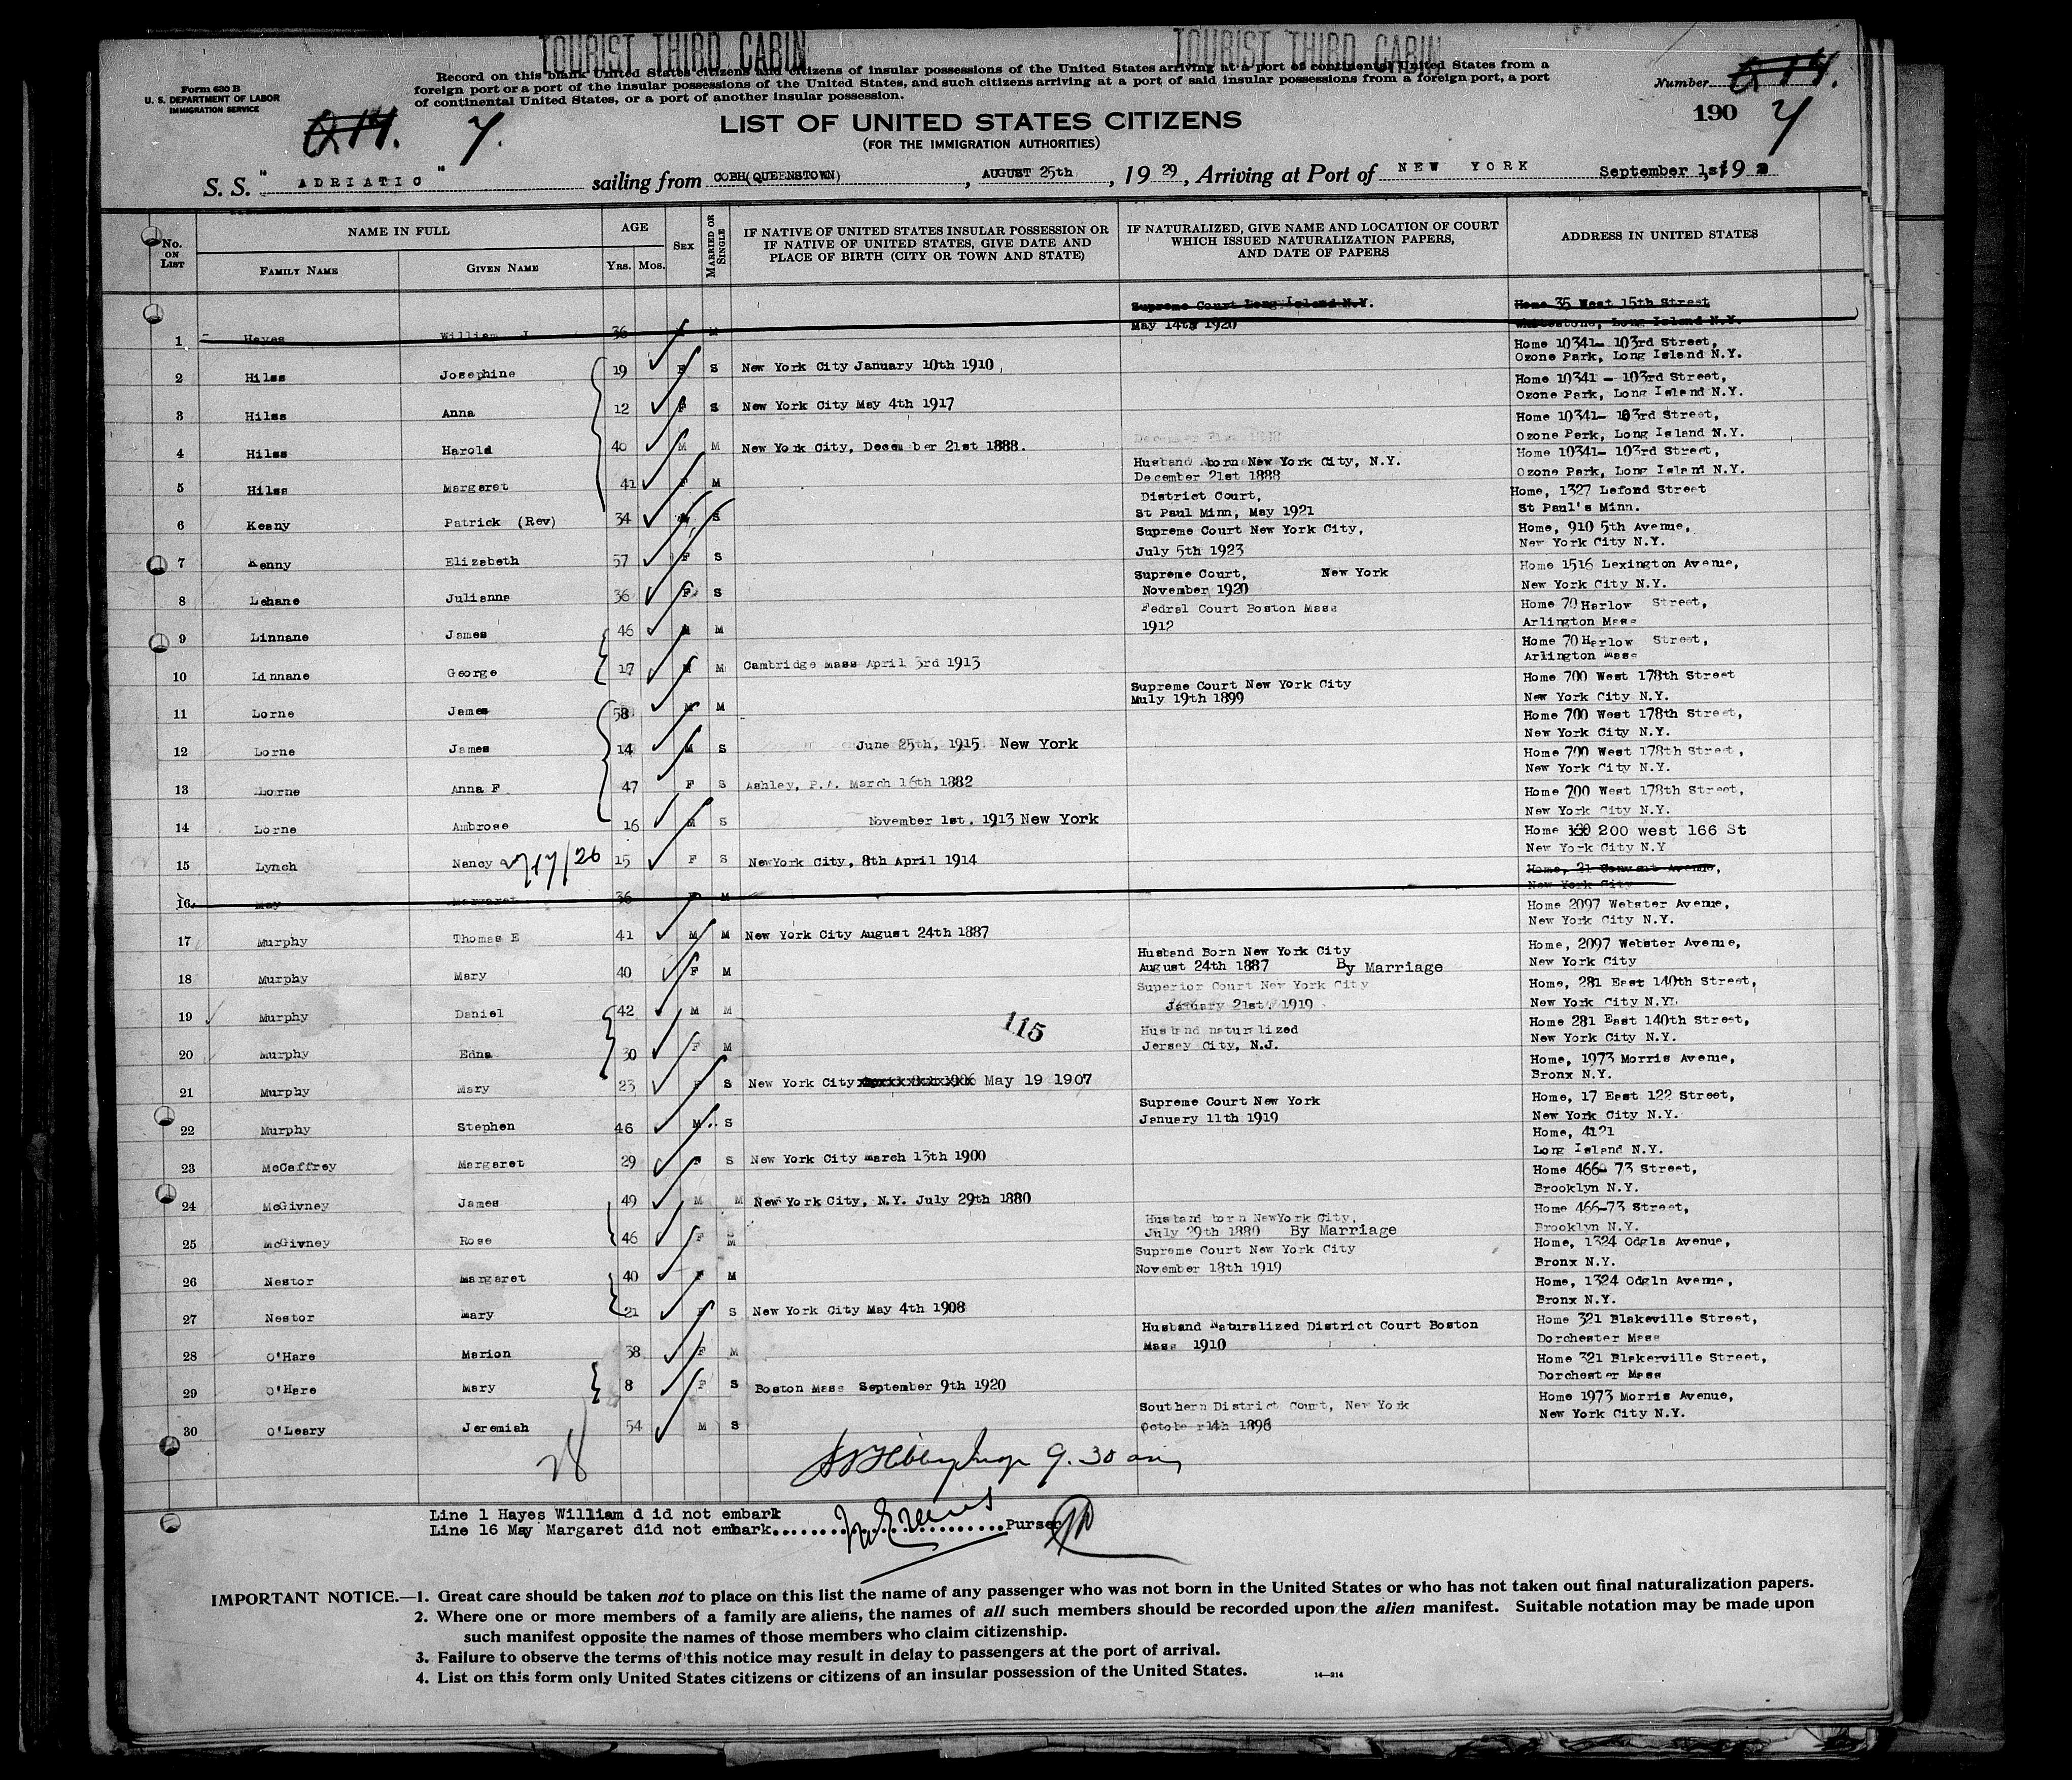 TOURIST THIRD CABIN TOURIST THIRD CABIN
Form 630 B
U. S. DEPARTMENT OF LABOR
IMMIGRATION SERVICE
Record on this blank United States citizens and citizens of insular possessions of the United States arriving at a port of continental United States from a
foreign port or a port of the insular possessions of the United States, and such citizens arriving at a port of said insular possessions from a foreign port, a port
of continental United States, or a port of another insular possession.
Number
190
LIST OF UNITED STATES CITIZENS
(FOR THE IMMIGRATION AUTHORITIES)
S. S. " ADRIATIC " sailing from COBH(QUEENSTOWN), AUGUST 25th, 19 29, Arriving at Port of NEW YORK September 1st 19
No. ON LIST
NAME IN FULL
FAMILY NAME GIVEN NAME
AGE
Yrs. Mos.
SEX
MARRIED OR SINGLE
IF NATIVE OF UNITED STATES INSULAR POSSESSION OR
IF NATIVE OF UNITED STATES, GIVE DATE AND
PLACE OF BIRTH (CITY OR TOWN AND STATE)
IF NATURALIZED, GIVE NAME AND LOCATION OF COURT
WHICH ISSUED NATURALIZATION PAPERS,
AND DATE OF PAPERS
ADDRESS IN UNITED STATES
Supreme Court Long Island N.Y. Home 35 West 15th Street
1 Hayes William J 36 M May 14th 1920 Whitestone, Long Island N.Y.
Home 10341- 103rd Street,
2 Hilss Josephine 19 F S New York City January 10th 1910, Ozone Park, Long Island N.Y.
Home 10341 - 103rd Street,
3 Hilss Anna 12 F S New York City May 4th 1917 Ozone Park, Long Island N.Y.
Home 10341- 103rd Street,
4 Hilss Harold 40 M M New York City, December 21st 1888. Ozone Park, Long Island N.Y.
Husband born New York City, N.Y. Home 10341- 103rd Street,
5 Hilss Margaret 41 F M December 21st 1888 Ozone Park, Long Island N.Y.
District Court, Home, 1327 Lefond Street
6 Keany Patrick (Rev) 34 M S St Paul Minn, May 1921 St Paul's Minn.
Supreme Court New York City, Home, 910 5th Avenue,
7 Kenny Elizabeth 57 F S July 5th 1923 New York City N.Y.
Supreme Court, New York Home 1516 Lexington Avenue,
8 Lehane Julianna 36 F S November 1920 New York City N.Y.
Fedral Court Boston Mass Home 70 Harlow Street,
9 Linnane James 46 M M 1912 Arlington Mass
Home 70 Harlow Street,
10 Linnane George 17 M M Cambridge Mass April 3rd 1913 Arlington Mass
Supreme Court New York City Home 700 West 178th Street
11 Lorne James 58 M M Muly 19th 1899 New York City N.Y.
Home 700 West 178th Street,
12 Lorne James 14 M S June 25th, 1915 New York New York City N.Y.
Home 700 West 178th Street,
13 Lorne Anna F 47 F S Ashley, P.A. March 16th 1882 New York City N.Y.
Home 700 West 178th Street,
14 Lorne Ambrose 16 M S November 1st. 1913 New York New York City N.Y.
Home 200 west 166 St
15 Lynch Nancy 15 F S NewYork City, 8th April 1914 New York City N.Y
Home, 21 Convent Avenue,
16 May Margaret 36 F M New York City
Home 2097 Webster Avenue,
17 Murphy Thomas E 41 M M New York City August 24th 1887 New York City N.Y.
Husband Born New York City Home, 2097 Webster Avenue,
18 Murphy Mary 40 F M August 24th 1887 By Marriage New York City
Superior Court New York City Home, 281 East 140th Street,
19 Murphy Daniel 42 M M January 21st 1919 New York City N.Y.
115
Husband naturalized Home 281 East 140th Street,
20 Murphy Edna 30 F M Jersey City, N.J. New York City N.Y.
Home, 1973 Morris Avenue,
21 Murphy Mary 23 F S New York City May 19 1907 Bronx N.Y.
Supreme Court New York Home, 17 East 122 Street,
22 Murphy Stephen 46 M S January 11th 1919 New York City N.Y.
Home, 4121
23 McCaffrey Margaret 29 F S New York City march 13th 1900 Long Island N.Y.
Home 466- 73 Street,
24 McGivney James 49 M M New York City, N.Y. July 29th 1880 Brooklyn N.Y.
Husband born NewYork City, Home 466-73 Street,
25 McGivney Rose 46 F M July 29th 1880 By Marriage Brooklyn N.Y.
Supreme Court New York City Home, 1324 Odgla Avenue,
26 Nestor Margaret 40 F M November 18th 1919 Bronx N.Y.
Home, 1324 Odgln Avenue,
27 Nestor Mary 21 F S New York City May 4th 1908 Bronx N.Y.
Husband Naturalized District Court Boston Home 321 Blakeville Street,
28 O'Hare Marion 38 F M Mass 1910 Dorchester Mass
Home 321 Blakerville Street,
29 O'Hare Mary 8 F S Boston Mass September 9th 1920 Dorchester Mass
Southern District Court, New York Home 1973 Morris Avenue,
30 O'Leary Jeremiah 54 M S October 14th 1896 New York City N.Y.
28
9.30 am
Line 1 Hayes William d id not embark
Line 16 May Margaret did not embark Purser
IMPORTANT NOTICE.—1. Great care should be taken not to place on this list the name of any passenger who was not born in the United States or who has not taken out final naturalization papers.
2. Where one or more members of a family are aliens, the names of all such members should be recorded upon the alien manifest. Suitable notation may be made upon
such manifest opposite the names of those members who claim citizenship.
3. Failure to observe the terms of this notice may result in delay to passengers at the port of arrival.
4. List on this form only United States citizens or citizens of an insular possession of the United States.
14—214